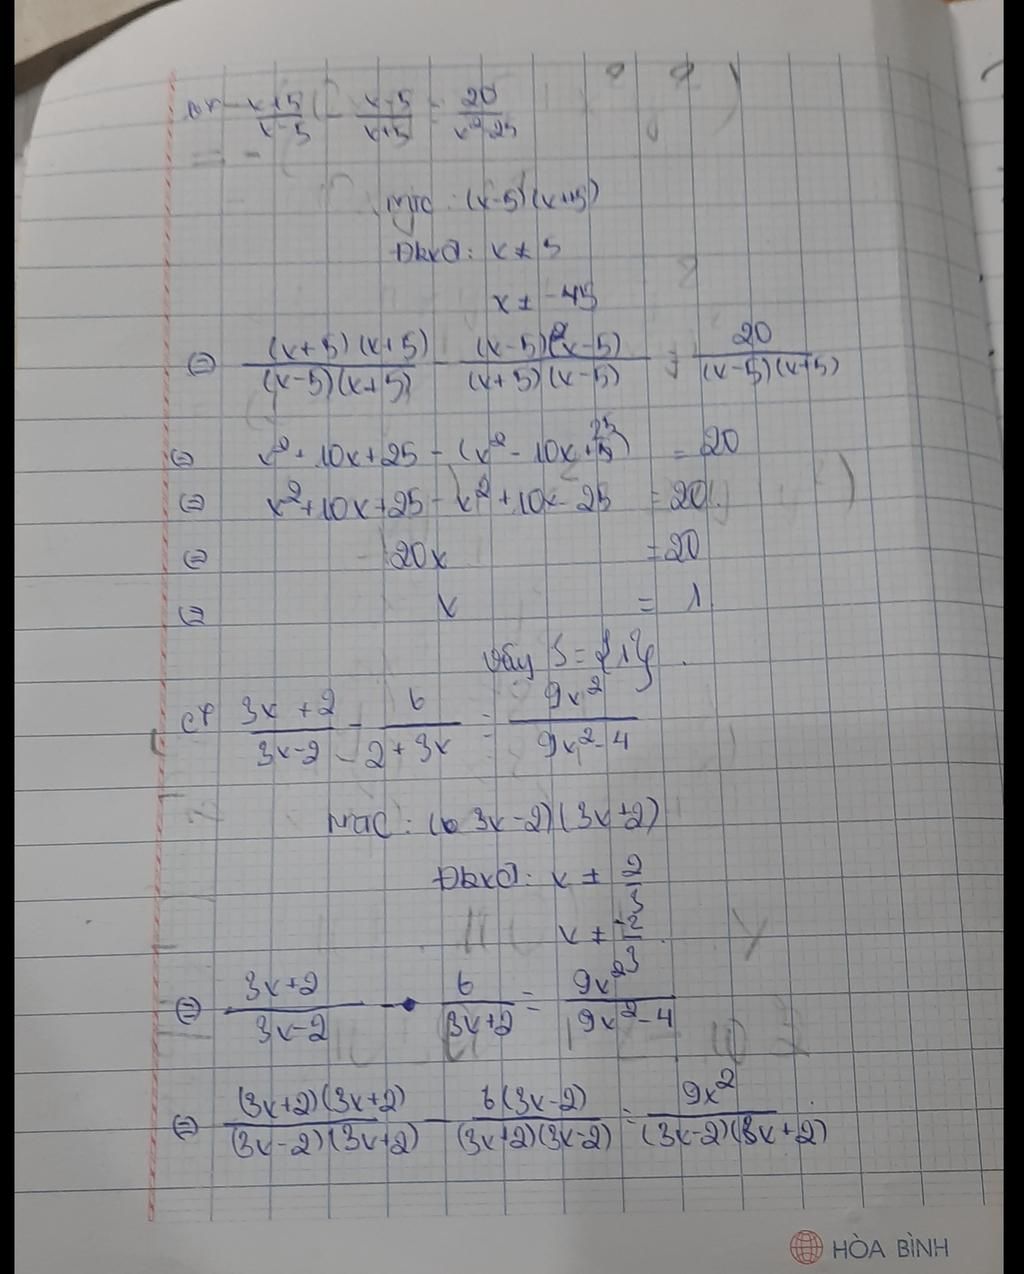 x+5/x-5 - x-5/x+5 = 20/x²-25
MTC : (x-5)(x+5)
ĐKXĐ: x ≠ 5
x ≠ -5
⇔ (x+5)(x+5)/(x-5)(x+5) - (x-5)(x-5)/(x+5)(x-5) = 20/(x-5)(x+5)
⇔ x²+10x+25-(x²-10x+25) = 20
⇔ x²+10x+25-x²+10x-25 = 20
⇔ 20x = 20
⇔ x = 1
Vậy S={1}.
c, 3x+2/3x-2 - 6/2+3x = 9x²/9x²-4
MTC : (3x-2)(3x+2)
ĐKXĐ: x ≠ 2/3
x ≠ -2/3
⇔ 3x+2/3x-2 - 6/3x+2 = 9x²/9x²-4
⇔ (3x+2)(3x+2)/(3x-2)(3x+2) - 6(3x-2)/(3x+2)(3x-2) = 9x²/(3x-2)(3x+2)
HÒA BÌNH